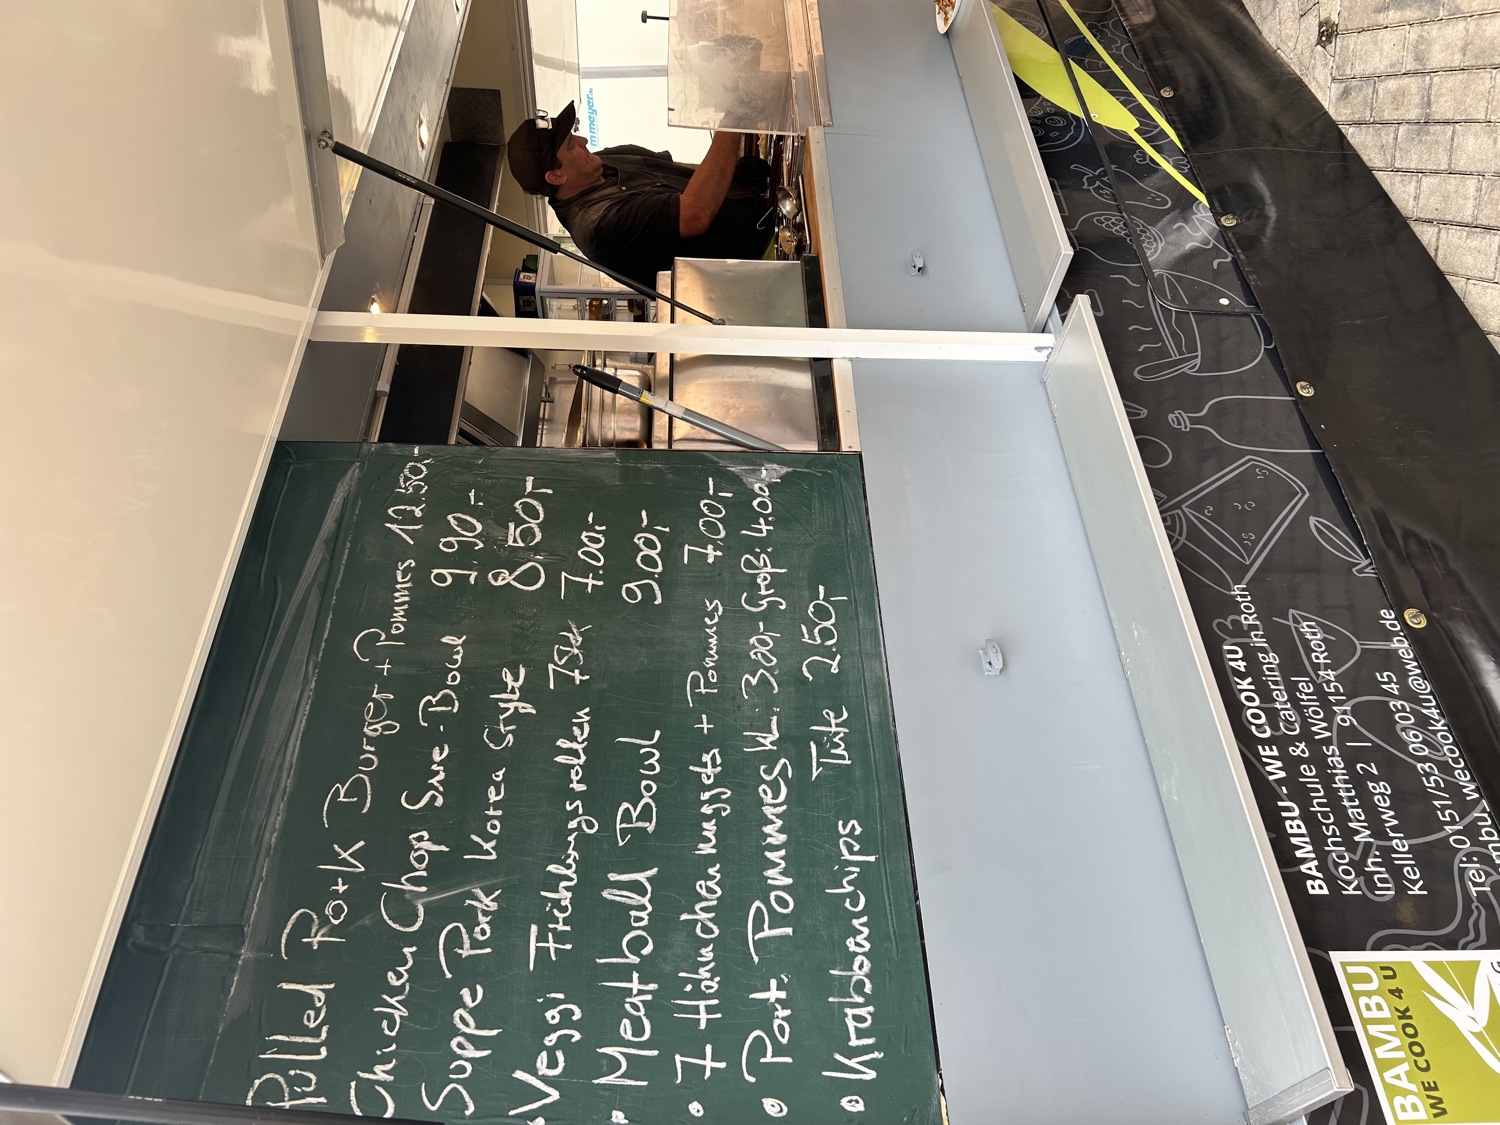 Pulled Pork Burger + Pommes 12.50,-
Chicken Chop Sue-Bowl 9.90,-
Suppe Pork Korea Style 8.50,-
• Veggi Frühlingsrollen 7Stk 7.00,-
• Meatball Bowl 9.00,-
• 7 Hähnchennuggets + Pommes 7.00,-
• Port. Pommes kl. 3.00,- Groß: 4.00,-
• Krabbenchips Tüte 2.50,-
BAMBU - WE COOK 4U
Kochschule & Catering in Roth
Inh. Matthias Wölfel
Kellerweg 2 | 91154 Roth
Tel: 0151/53 0603 45
wecook4u@web.de
BAMBU
WE COOK 4 U
meyer